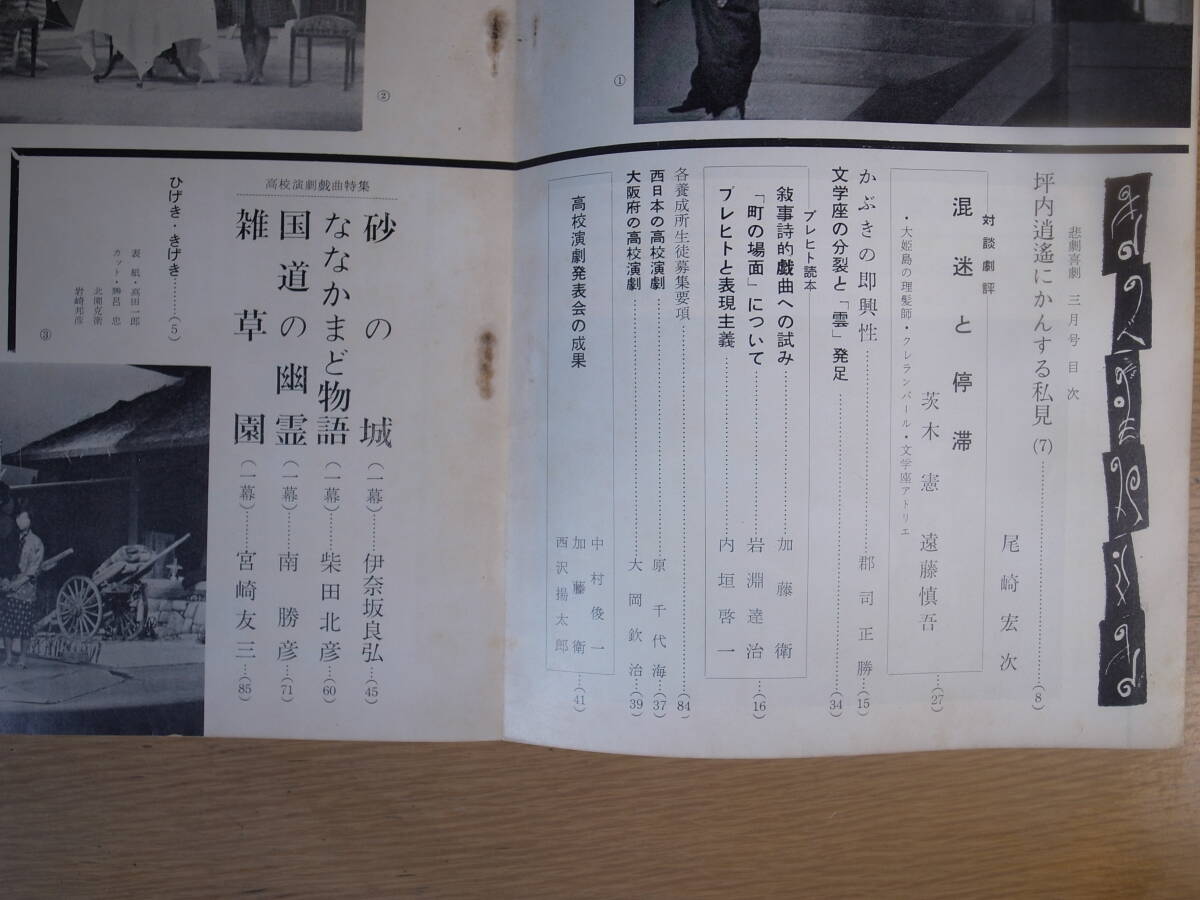 ②
①
悲劇喜劇　三月号　目次
坪内逍遙にかんする私見(7)………尾崎宏次…(8)
対談劇評
混迷と停滞　茨木憲　遠藤慎吾…(27)
・大姫島の理髪師・クレランバール・文学座アトリエ
かぶきの即興性………郡司正勝…(15)
文学座の分裂と「雲」発足………(34)
ブレヒト読本
敍事詩的戯曲への試み………加藤衛
「町の場面」について………岩淵達治…(16)
ブレヒトと表現主義………内垣啓一
各養成所生徒募集要項………(84)
西日本の高校演劇………原千代海…(37)
大阪府の高校演劇………大岡欽治…(39)
高校演劇発表会の成果
中村俊一
加藤衛…(41)
西沢揚太郎
高校演劇戯曲特集
砂の城(一幕)……伊奈坂良弘…(45)
ななかまど物語(一幕)……柴田北彦…(60)
国道の幽霊(一幕)……南勝彦…(71)
雑草園(一幕)……宮崎友三…(85)
ひげき・きげき………(5)
表紙・高田一郎
カット・勝呂忠
北園克衛
岩崎邦彦
③